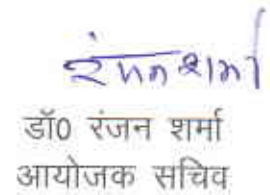 रंजन शर्मा
डॉ0 रंजन शर्मा
आयोजक सचिव